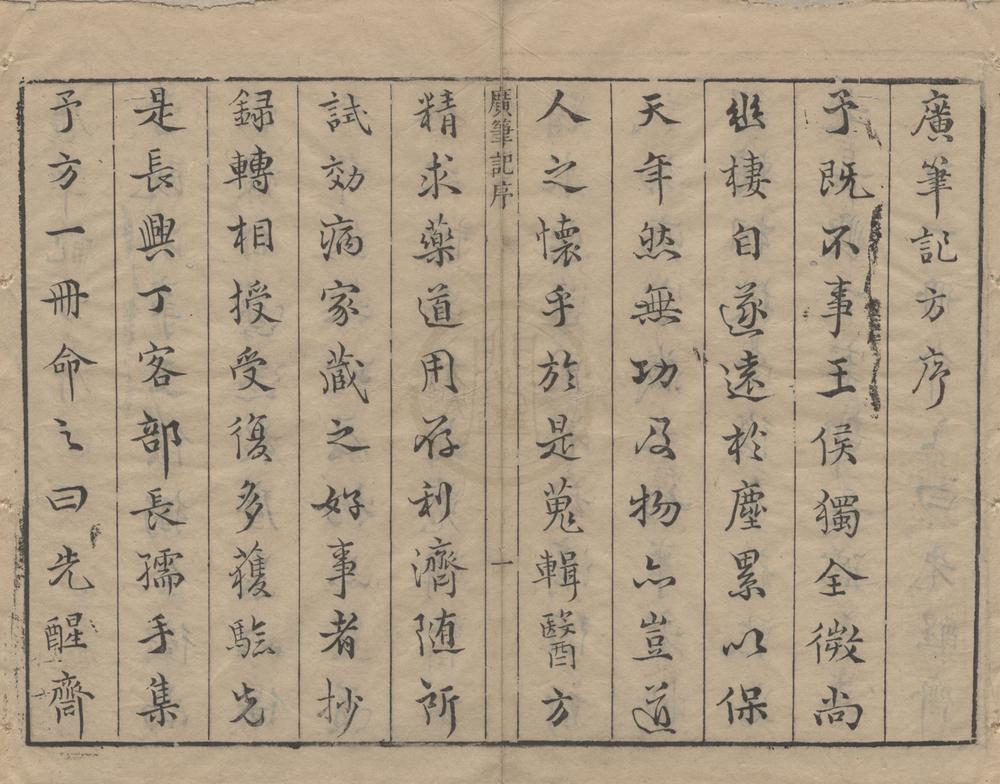 廣筆記方序
予既不事王侯獨全微尚
幽棲自遂遠於塵累以保
天年然無功及物亦豈道
人之懷乎於是蒐輯醫方
廣筆記序
一
精求藥道用存利濟随所
試効病家藏之好事者抄
録轉相授受復多獲驗先
是長興丁客部長孺手集
予方一冊命之曰先醒齋